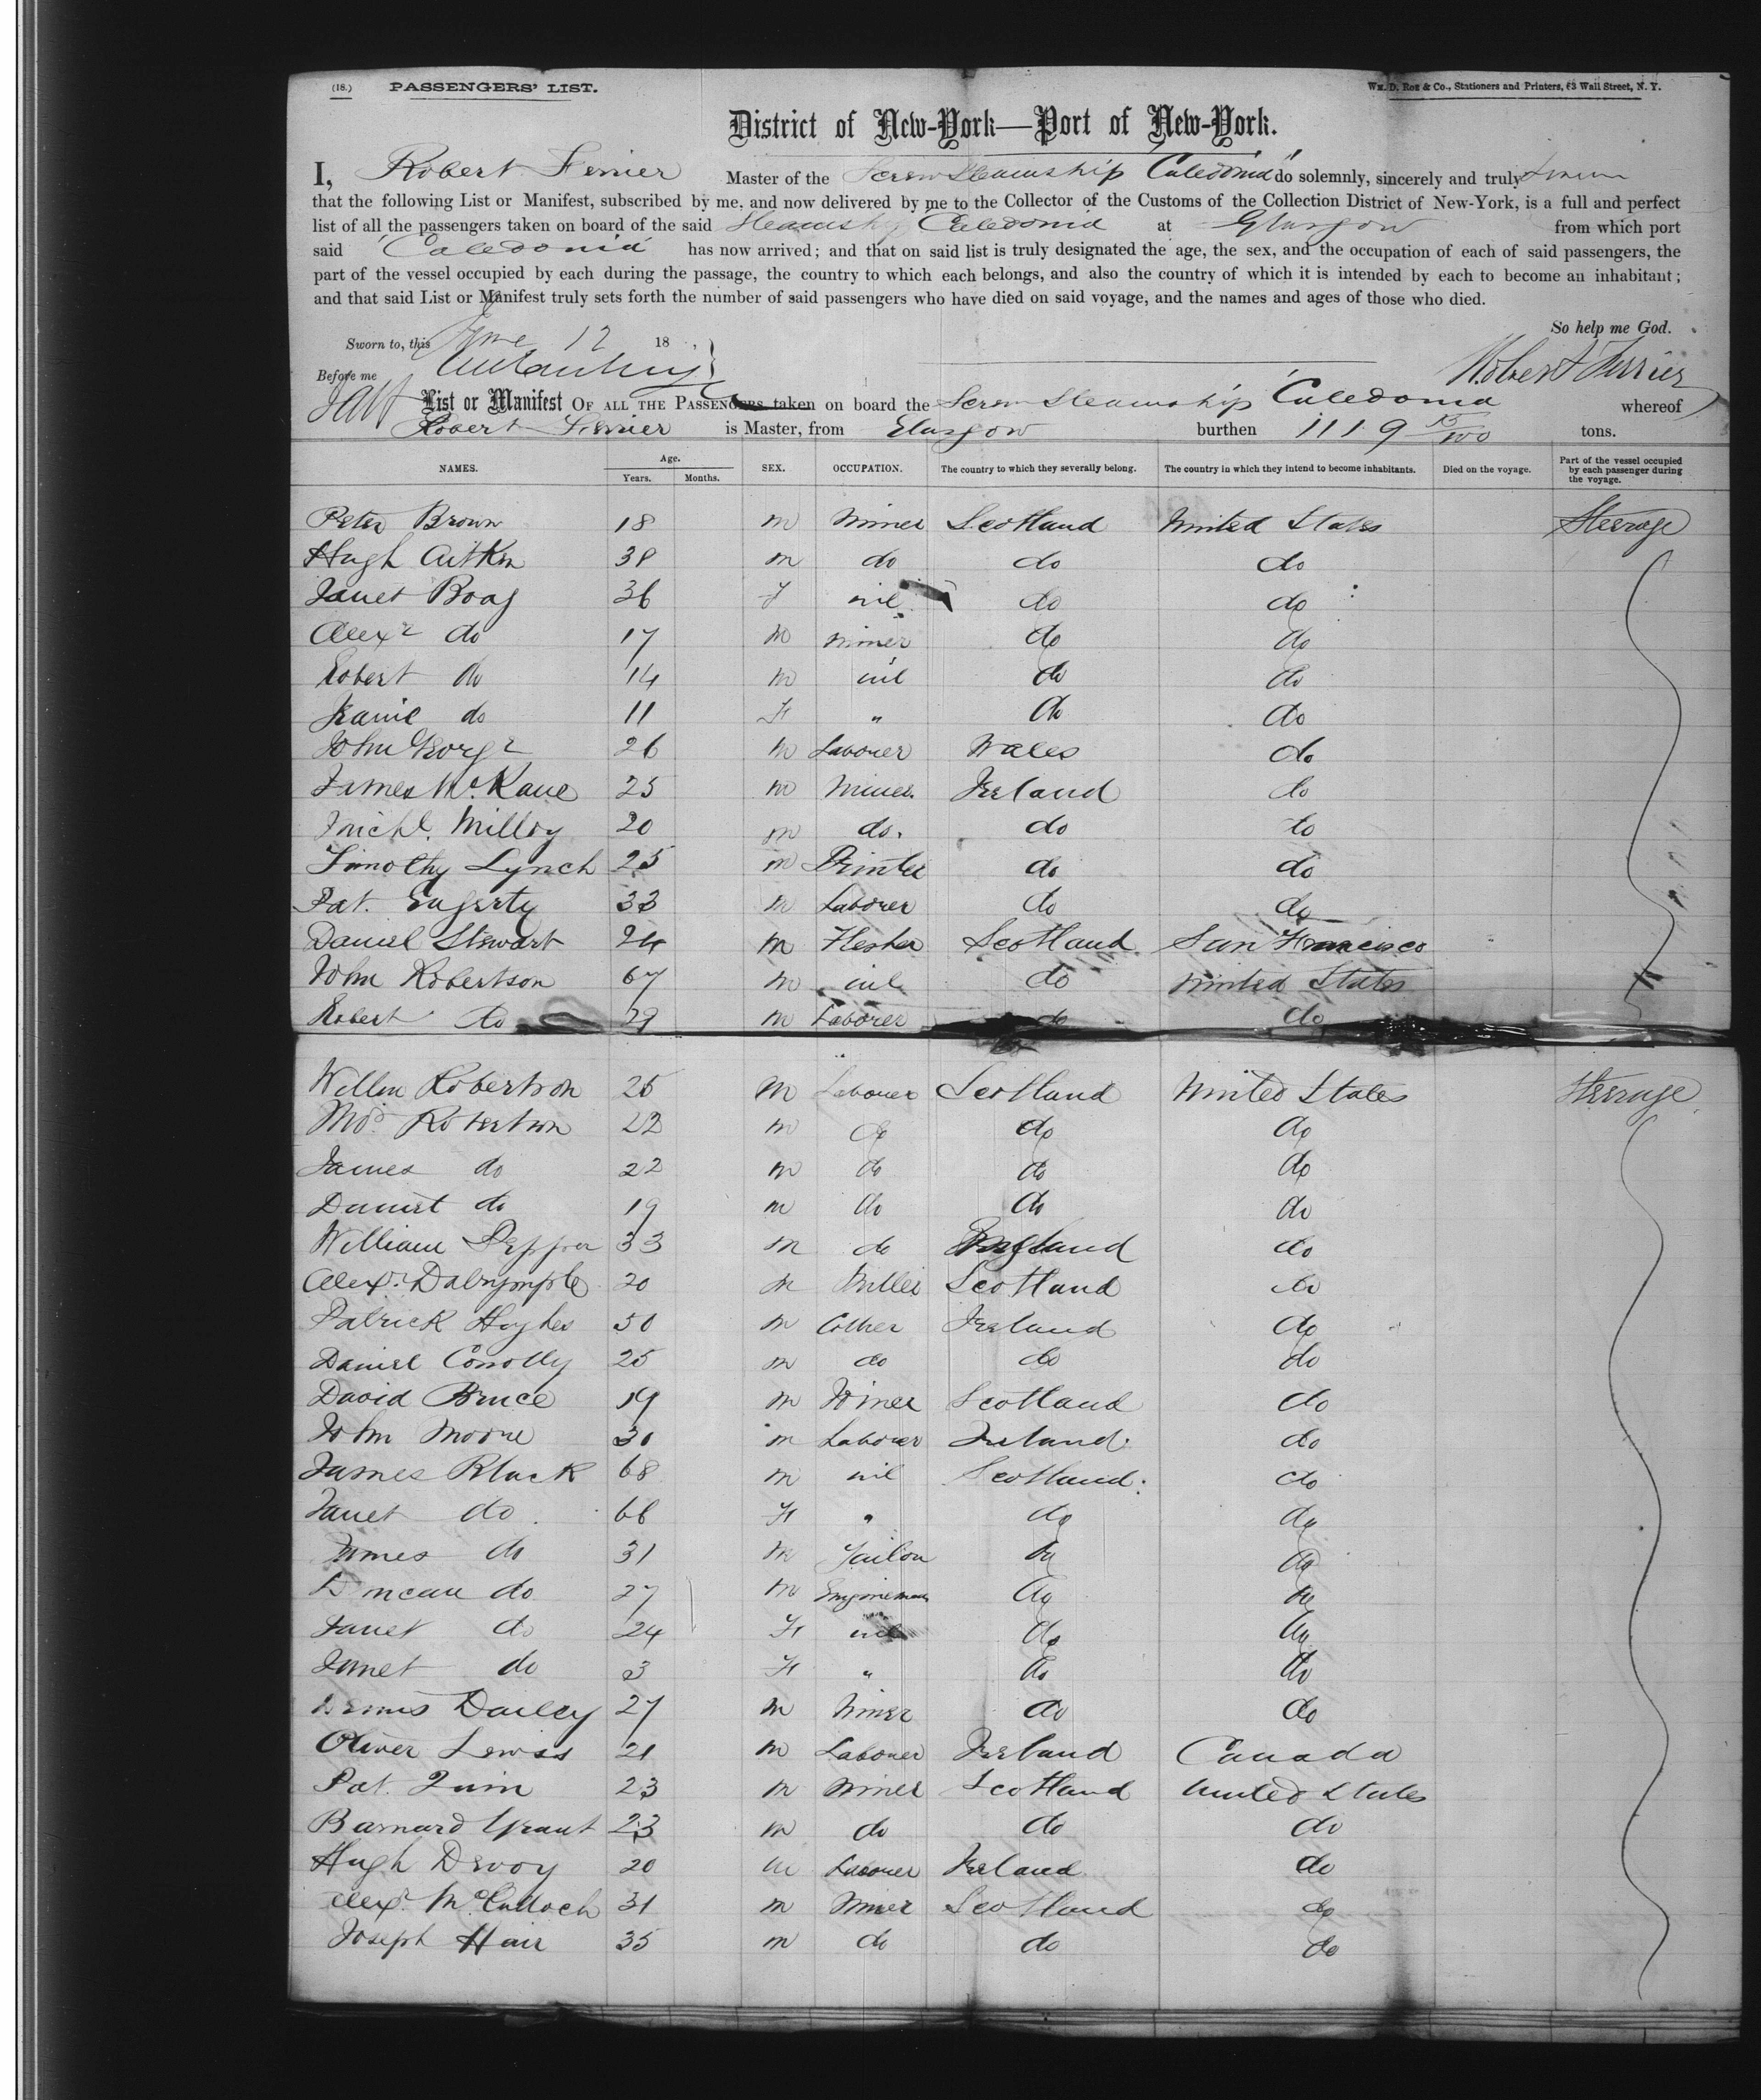 (18.) PASSENGERS' LIST. Wm. D. Roe & Co., Stationers and Printers, 63 Wall Street, N. Y.
District of New-York—Port of New-York.
I, Robert Ferrier Master of the Screw Steamship "Caledonia" do solemnly, sincerely and truly swear
that the following List or Manifest, subscribed by me, and now delivered by me to the Collector of the Customs of the Collection District of New-York, is a full and perfect
list of all the passengers taken on board of the said Steamship Caledonia at Glasgow from which port
said "Caledonia" has now arrived; and that on said list is truly designated the age, the sex, and the occupation of each of said passengers, the
part of the vessel occupied by each during the passage, the country to which each belongs, and also the country of which it is intended by each to become an inhabitant;
and that said List or Manifest truly sets forth the number of said passengers who have died on said voyage, and the names and ages of those who died.
So help me God.
Sworn to, this June 12 18
Before me Robert Ferrier
List or Manifest OF ALL THE PASSENGERS taken on board the Screw Steamship Caledonia whereof
Robert Ferrier is Master, from Glasgow burthen 1119 tons.
NAMES. Age. Years. Months. SEX. OCCUPATION. The country to which they severally belong. The country in which they intend to become inhabitants. Died on the voyage. Part of the vessel occupied by each passenger during the voyage.
Peter Brown 18 m Miner Scotland United States Steerage
Hugh Aitken 38 m do do do
Janet Boag 36 F nil do do
Alexr do 17 m miner do do
Robert do 14 m nil do do
Jeanie do 11 F " do do
John George 26 m Laborer Wales do
James McKane 25 m Miner Ireland do
Michl. Milloy 20 m do. do do
Timothy Lynch 25 m Printer do do
Pat. Eagerty 33 m Laborer do do
Daniel Stewart 24 m Flesher Scotland San Francisco
John Robertson 67 m nil do United States
Robert do 29 m Laborer do do
Willm Robertson 25 m Laborer Scotland United States Steerage
Robertson 22 m do do do
James do 22 m do do do
Daniel do 19 m do do do
William Pepper 33 m do England do
Alexr. Dalrymple 20 m Miller Scotland do
Patrick Hughes 50 m Collier Ireland do
Daniel Conolly 25 m do do do
David Bruce 19 m Miner Scotland do
John Moore 30 m Laborer Ireland. do
James Black 68 m nil Scotland. do
Janet do. 66 F " do do
James do 31 m Tailor do do
Duncan do. 27 m Engineman do do
Janet do 24 F nil do do
Janet do 3 F " do do
Dennis Dailey 27 m Miner do do
Oliver Lewiss 21 m Laborer Ireland Canada
Pat. Quin 23 m Miner Scotland United States
Barnard Grant 23 m do do do
Hugh Devoy 20 m Laborer Ireland do
Alexr. McCulloch 31 m Miner Scotland do
Joseph Hair 35 m do do do